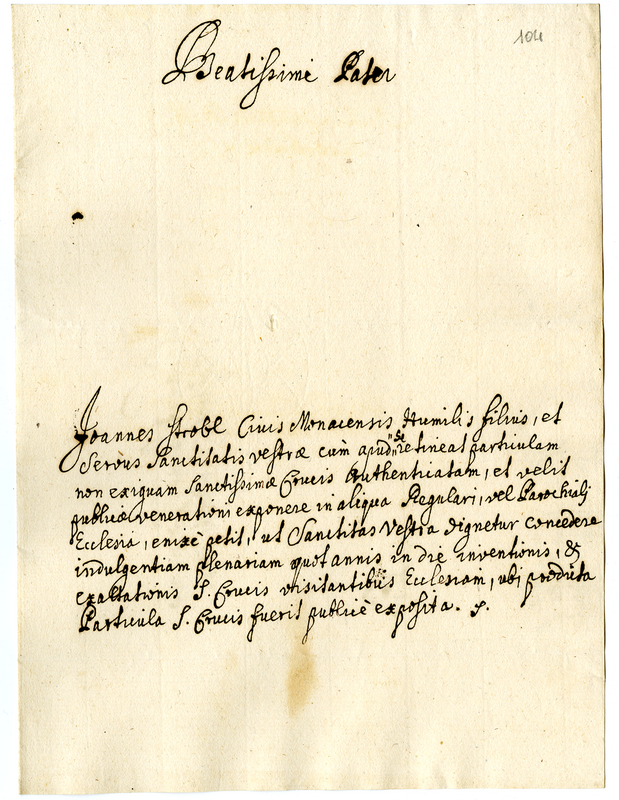 104
Beatissime Pater
Joannes Strobl Civis Monacensis Humilis filius, et
Servus Sanctitatis vestræ cum apud se retineat particulam
non exiquam Sanctissimæ Crucis Authenticatam, et velit
publicæ venerationi exponere in aliqua Regulari, vel Parochiali
Ecclesia, enixè petit, ut Sanctitas Vestra dignetur concedere
indulgentiam plenariam quotannis in die inventionis, &
exaltationis S. Crucis visitantibus Ecclesiam, ubi prodicta
Particula S. Crucis fuerit publicè exposita.